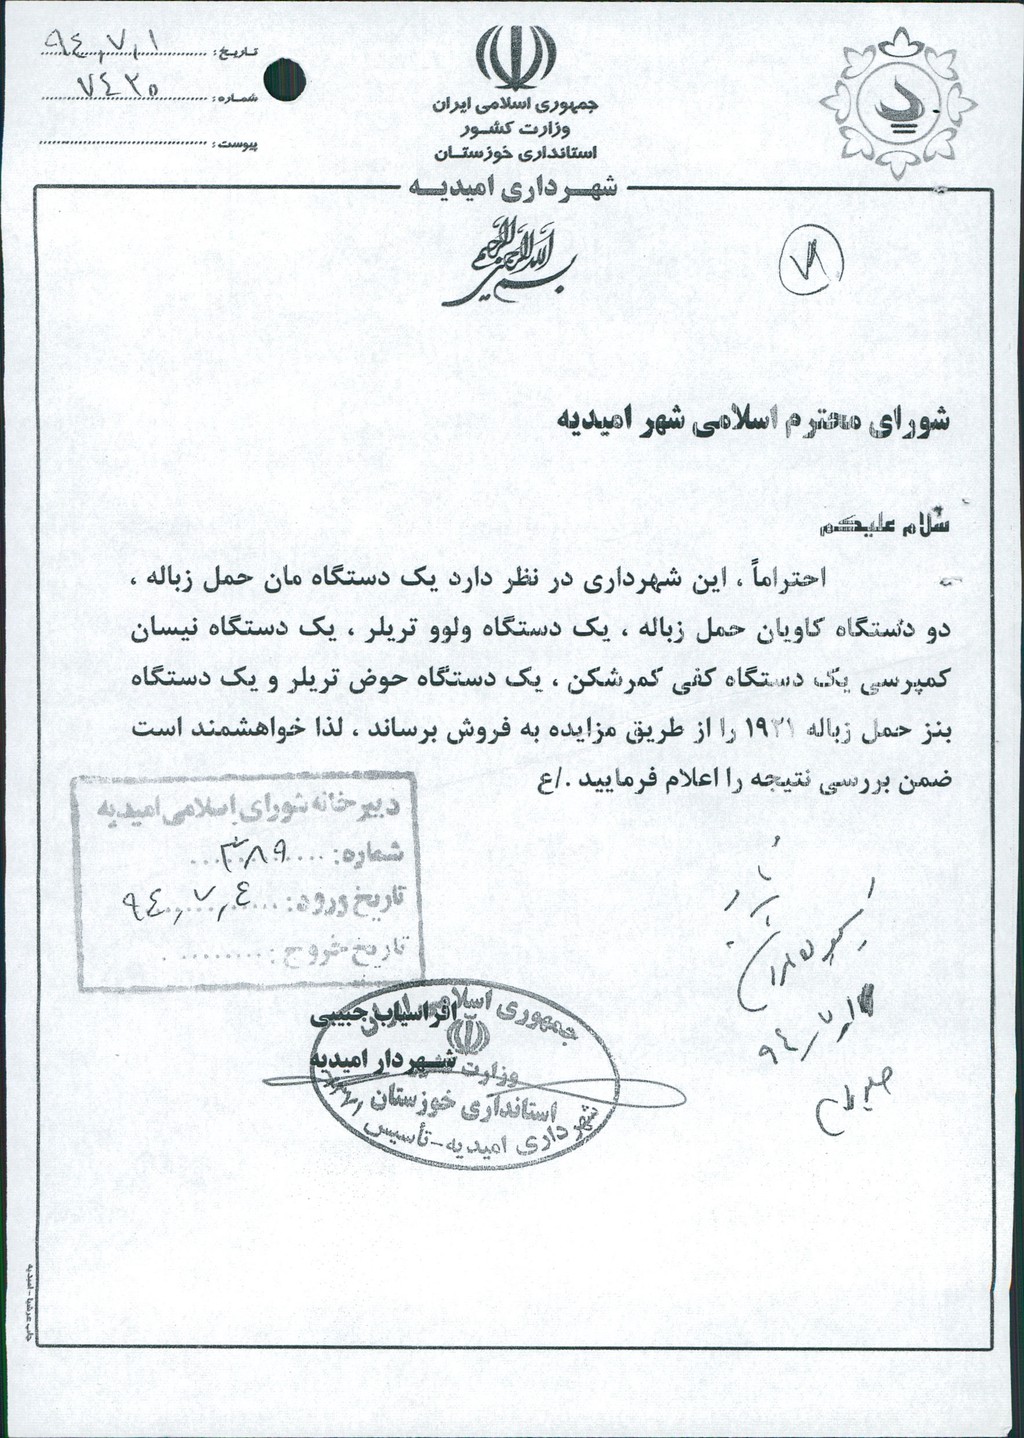 جمهوری اسلامی ایران
وزارت کشـور
استانداری خوزستـان
شهـرداری امیدیـه
تاریخ: ۹۴،۷،۱
شماره: ۷۴۲۵
پیوست:
بسم الله الرحمن الرحیم
شورای محترم اسلامی شهر امیدیه
سلام علیکم
احتراماً ، این شهرداری در نظر دارد یک دستگاه مان حمل زباله ،
دو دستگاه کاویان حمل زباله ، یک دستگاه ولوو تریلر ، یک دستگاه نیسان
کمپرسی یک دستگاه کفی کمرشکن ، یک دستگاه حوض تریلر و یک دستگاه
بنز حمل زباله ۱۹۲۱ را از طریق مزایده به فروش برساند ، لذا خواهشمند است
ضمن بررسی نتیجه را اعلام فرمایید ./ع
دبیرخانه شورای اسلامی امیدیه
شماره: ۳۸۹
تاریخ ورود: ۹۴،۷،۴
تاریخ خروج:
افراسیاب حبیبی
شهـردار امیدیه
جمهوری اسلامی ایران
وزارت کشور
استانداری خوزستان
شهرداری امیدیه-تأسیس
چاپ عرشیا - امیدیه